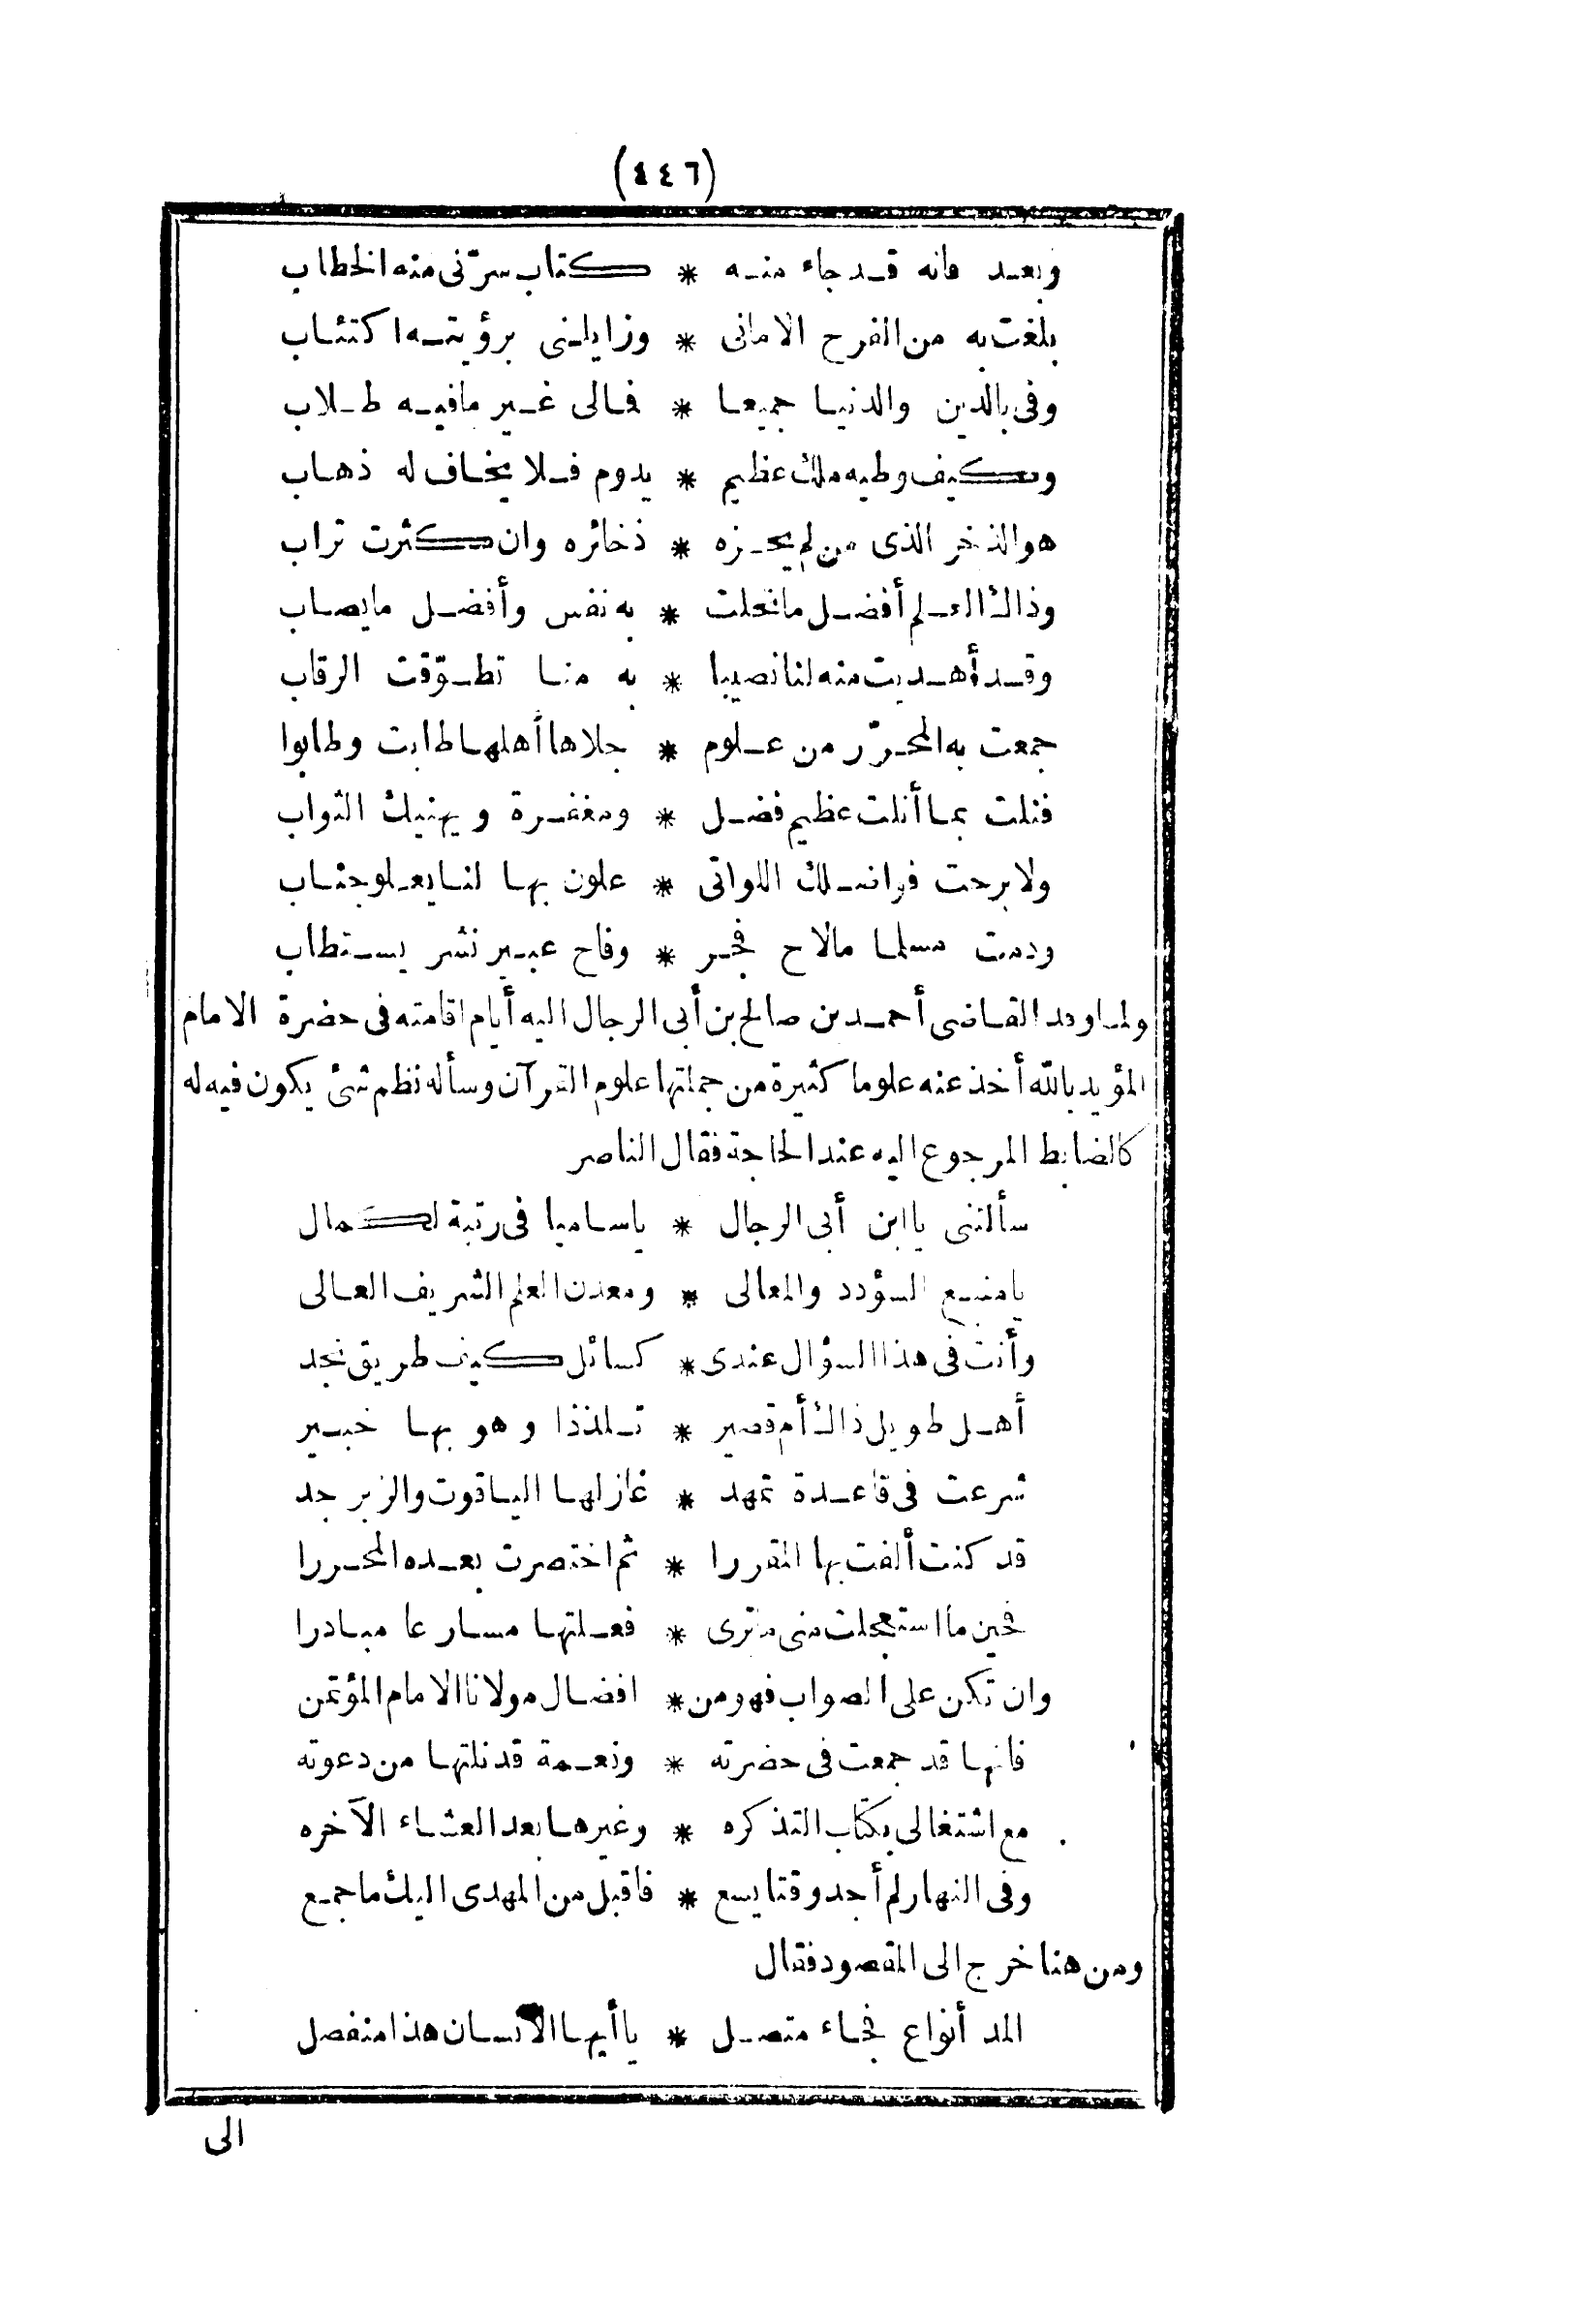 (٤٤٦)
وبعد فانه قد جاء منه * كتاب سرّنى منه الخطاب
بلغت به من الفرح الامانى * وزايلنى برؤيته اكتئاب
وفى بالدين والدنيا جميعا * فمالى غير مافيه طلاب
وكيف وطيه ملك عظيم * يدوم فلا يخاف له ذهاب
هو الذخر الذى من لم يحزه * ذخائره وان كثرت تراب
وذاك العلم أفضل ما تحلت * به نفس وأفضل ما يصاب
وقد أهديت منه لنا نصيبا * به منا تطوّقت الرقاب
جمعت به المحرّر من علوم * جلاها أهلها طابت وطابوا
فنلت بما أنلت عظيم فضل * ومغفرة ويهنيك الثواب
ولا برحت فوائدك اللواتى * علون بها لنا يعلو جناب
ودمت مسلما مالاح فجر * وفاح عبير نشر يستطاب
ولما وفد القاضى أحمد بن صالح بن أبى الرجال اليه أيام اقامته فى حضرة الامام
المؤيد بالله أخذ عنه علوما كثيرة من جملتها علوم القرآن وسأله نظم شئ يكون فيه له
كالضابط المرجوع اليه عند الحاجة فقال الناصر
سألتنى يا ابن أبى الرجال * ياساميا فى رتبة الكمال
يامنبع السؤدد والمعالى * ومعدن العلم الشريف العالى
وأنت فى هذا السؤال عندى * كسائل كيف طريق نجد
أهل طويل ذاك أم قصير * تلذذا وهو بها خبير
شرعت فى قاعدة تمهد * غازلها الياقوت والزبرجد
قد كنت ألفت بها المقررا * ثم اختصرت بعده المحررا
فحين ما استعجلت منى ماترى * فعلتها مسارعا مبادرا
وان تكن على الصواب فهو من * افضال مولانا الامام المؤتمن
فانها قد جمعت فى حضرته * ونعمة قد نلتها من دعوته
مع اشتغالى بكتاب التذكره * وغيرها بعد العشاء الآخره
وفى النهار لم أجد وقتا يسع * فاقبل من المهدى اليك ما جمع
ومن هنا خرج الى المقصود فقال
المد أنواع فجاء متصل * يا أيها الانسان هذا منفصل
الى